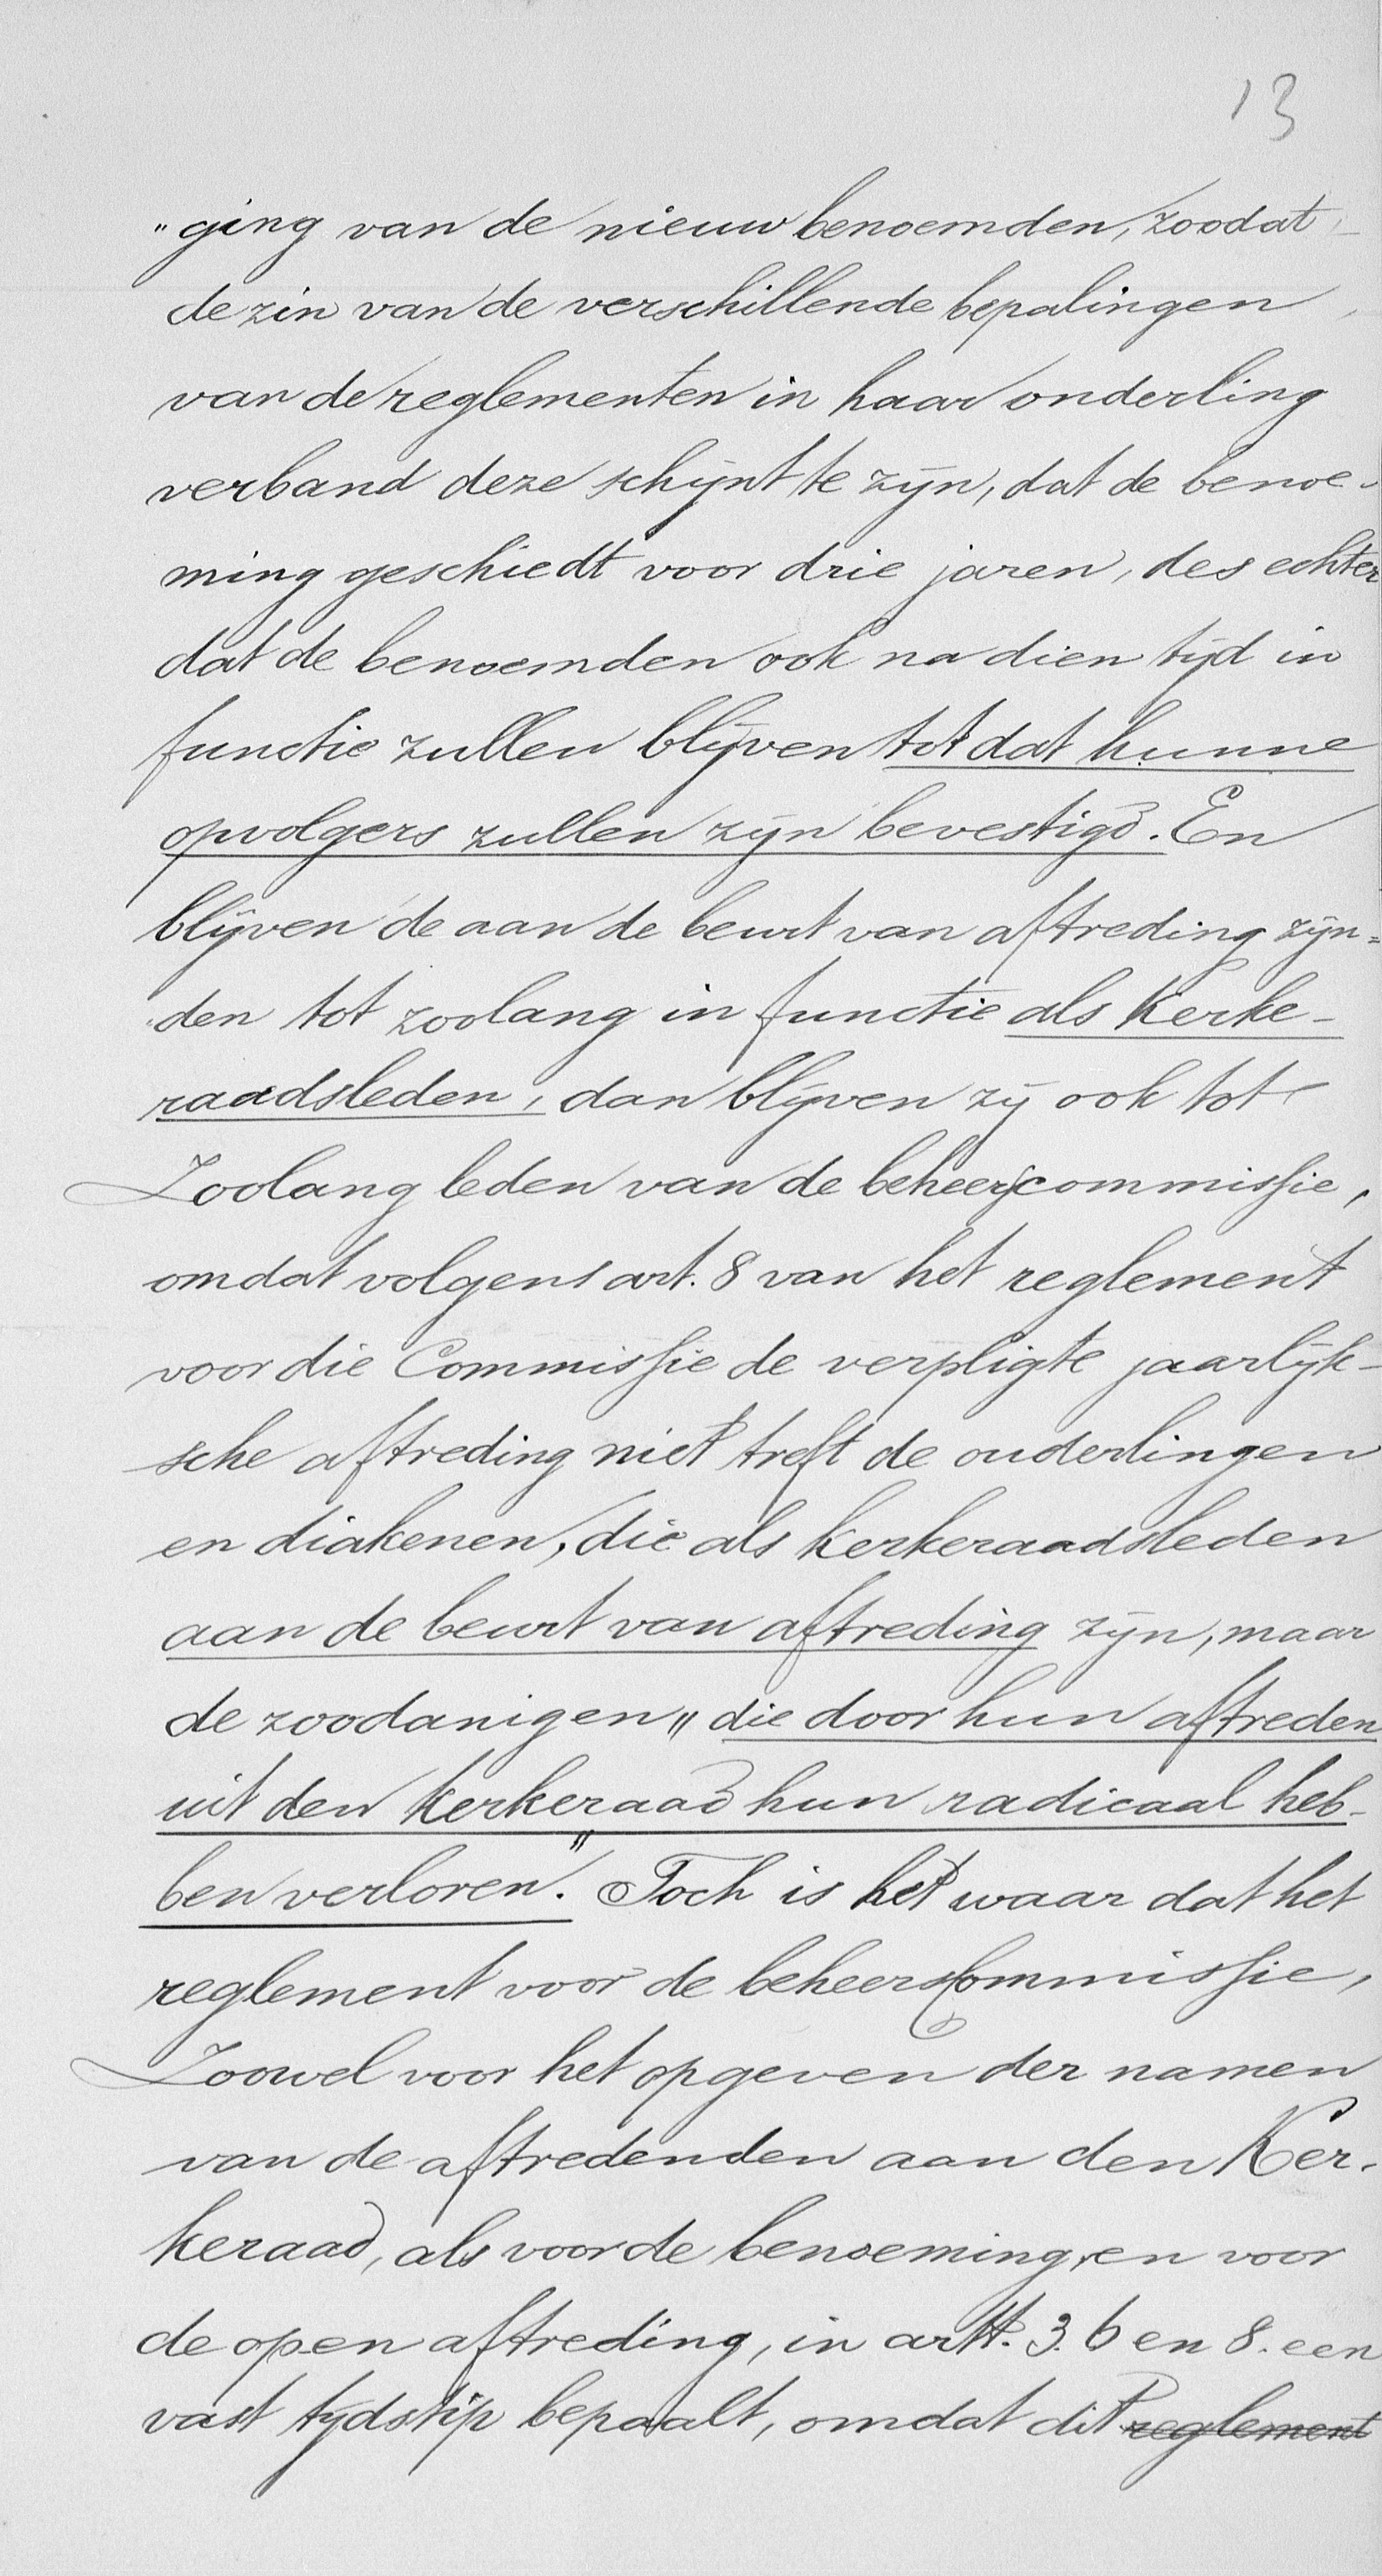 13
"ging van de nieuw benoemden, zoodat
de zin van de verschillende bepalingen
van de reglementen in haar onderling
verband deze schijnt te zijn, dat de benoe-
ming geschiedt voor drie jaren, des echter
dat de benoemden ook na dien tijd in
functie zullen blijven tot dat hunne
opvolgers zullen zijn bevestigd. En
blijven de aan de beurt van aftreding zijn=
den tot zoolang in functie als kerke-
raadsleden, dan blijven zij ook tot
Zoolang leden van de beheerscommissie,
omdat volgens art. 8 van het reglement
voor die Commissie de verpligte jaarlijk-
sche aftreding niet treft de ouderlingen
en diakenen, die als kerkeraadsleden
aan de beurt van aftreding zijn, maar
de zoodanigen „die door hun aftreden
uit den kerkeraad hun radicaal heb-
ben verloren." Toch is het waar dat het
reglement voor de beheersCommissie,
Zoowel voor het opgeven der namen
van de aftredenden aan den Ker-
keraad, als voor de benoeming, en voor
de open aftreding, in artt. 3. 6 en 8. een
vast tijdstip bepaalt, omdat dit reglement